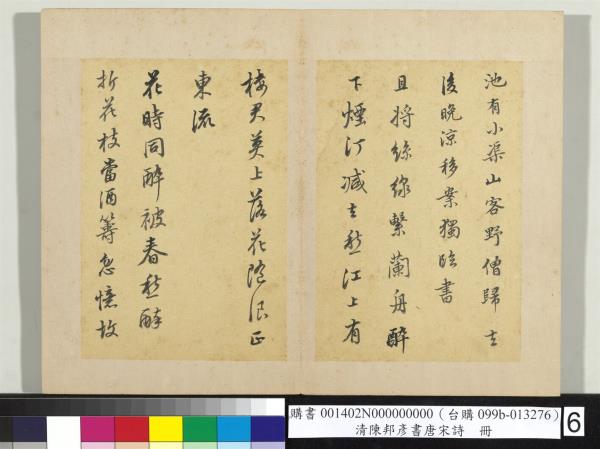 池有小渠山客野僧歸去
後晚涼移案獨臨書
且將絲線繫蘭舟醉
下煙汀減去愁江上有
樓君莫上落花隨浪正
東流
花時同醉破春愁醉
折花枝當酒籌忽憶故
購書 001402N000000000 (台購 099b-013276)
清陳邦彥書唐宋詩 冊
6